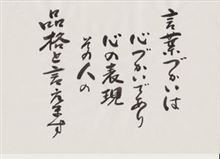 言葉づかいは
心づかいであり
心の表現
その人の
品格と言えます